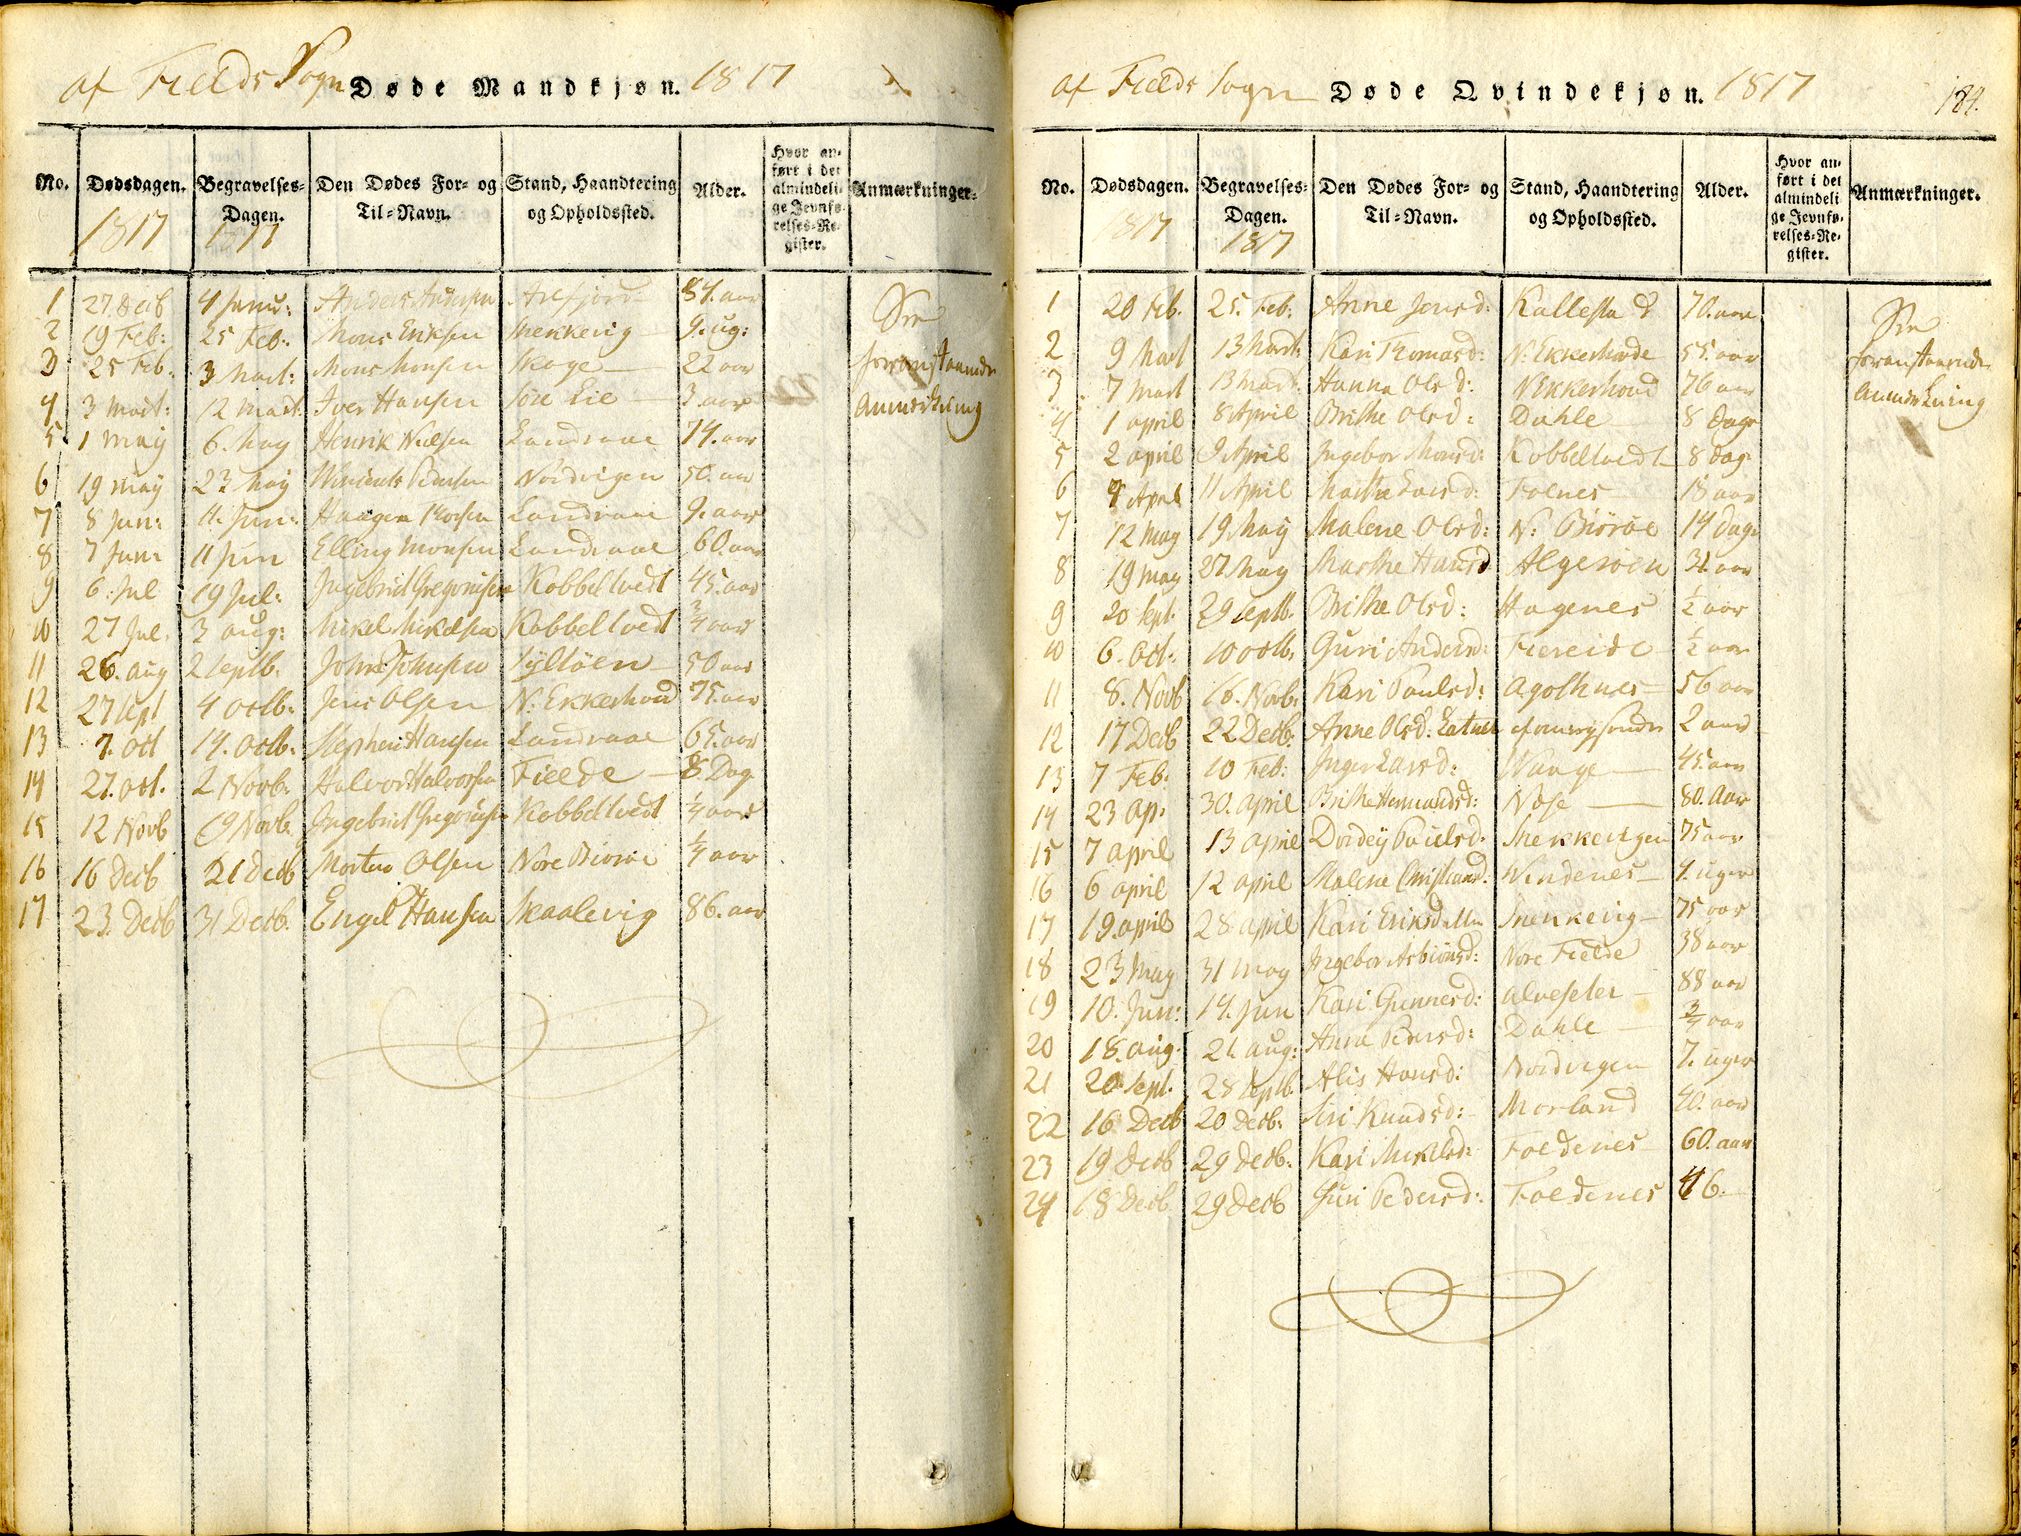 af Fields Sogn Døde Mandkjøn. 1817
No. Dødsdagen. 1817 Begravelses-Dagen. 1817 Den Dødes For- og Til-Navn. Stand, Haandtering og Opholdssted. Alder. Hvor anført i det almindelige Jevnførelses-Register. Anmærkninger.
1 27 Decb 4 Janu: Anders Andersen 84. aar See
2 19 Feb: 25 Feb: Mons Eriksen Snekkevig 9. ug:
3 25 Feb. 3 Mart: Mons Monsen Skoge 22 aar foranstaaende
4 3 Mart: 12 Mart Iver Hansen Søre Lie 3 aar Anmerkning
5 1 May 6. May Henrik Nielsen Landraae 74. aar
6 19 May 23 May Pedersen Nordvigen 50. aar
7 8 Jun: 11. Jun: Haagen Landraae 9. aar
8 7 Jun: 11 Jun Elling Monsen Landraae 60. aar
9 6. Jul 19 Jul: Ingebrict Gregoriusen Kobbeltvedt 45. aar
10 27 Jul. 3 aug: Mikel Mikelsen Kobbeltvedt 3/4 aar
11 26. aug 2 Septb. John Johnsen Syltøen 50 aar
12 27 Sept 4 octb. Jens Olsen N. Ekkerhovd 75. aar
13 7. oct 14. octb. Stephen Hansen Landraae 65. aar
14 27. oct. 2 Novb. Halvor Halvorsen Fielde 8. Dag
15 12 Novb 19 Novb. Ingebrict Gregoriusen Kobbeltvedt 1/4 aar
16 16 Decb 21 Decb Morten Olsen Nore Biorøe 1/4 aar
17 23. Decb 31 Decb. Engel Hansen Skaalevig 86. aar
af Fields Sogn Døde Qvindekjøn. 1817 184.
No. Dødsdagen. 1817 Begravelses-Dagen. 1817 Den Dødes For- og Til-Navn. Stand, Haandtering og Opholdssted. Alder. Hvor anført i det almindelige Jevnførelses-Register. Anmærkninger.
1 20 Feb. 25. Feb: Anne Jensd: Kallestad 70. aar See
2 9 Mart 13 Mart: Kari Thomasd: N. Ekkerhovde 55. aar foranstaaende
3 7 Mart 13 Mart. Hanna Olsd: N Ekkerhovd 76 aar Anmerkning
4 1 april 8 April Brithe Olsd: Dahle 8 dage
5 2 april 9 April Ingebor Monsd: Kobbeltvedt 8 dag
6 4 April 11 April Marthe Larsd: Folnes 18 aar
7 12 May 19 May Malene Olsd: N: Biorøe 14 dage
8 19 May 27. May Marthe Hansd Algerøen aar
9 20 Sept. 29 Septb. Brithe Olsd: Hagenes 1/2 aar
10 6. Oct. 10 octb. Guri Andersd: Fiereide 1/2 aar
11 8. Novb 16. Novb. Kari Poulsd: Agothnes 56 aar
12 17 Decb 22 Decb. Anne Olsd: 2 aar
13 7 Feb. 10 Feb: Inger Larsd: Waage 45. aar
14 23 Ap. 30. April Brithe Hermandsd: Nese 80. Aar
15 7 april 13 April Dordey Poulsd: Snekkevigen 75 aar
16 6 april 12 april Malene Christiansd. Windenes 4. uger
17 19. april 28 april Kari Eriksdatter Snekkevig 75 aar
18 23 May 31 May Ingebor Asbiörnsd: Nore Fielde 38 aar
19 10. Jun: 14. Jun Kari Gunnersd: Alveseter 88 aar
20 18. aug. 21. aug: Anne Pedersd: Dahle 3/4 aar
21 20 Sept. 28 Septb. Alis Hansd: Nordvigen 7. uger
22 16. Decb 20 Decb. Siri Knudsd: Morland 40. aar
23 19 Decb 29 Decb. Kari Mikelsd: Foldenes 60. aar
24 18 Decb 29 Decb Guri Pedersd: Foldenes 46.